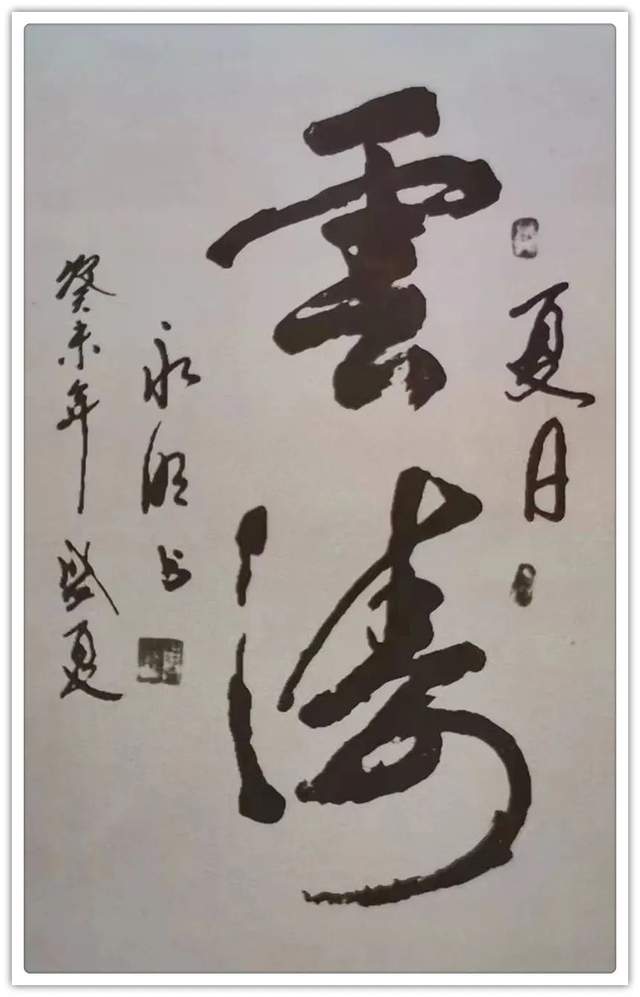 夏日
雲濤
癸未年盛夏
永明书